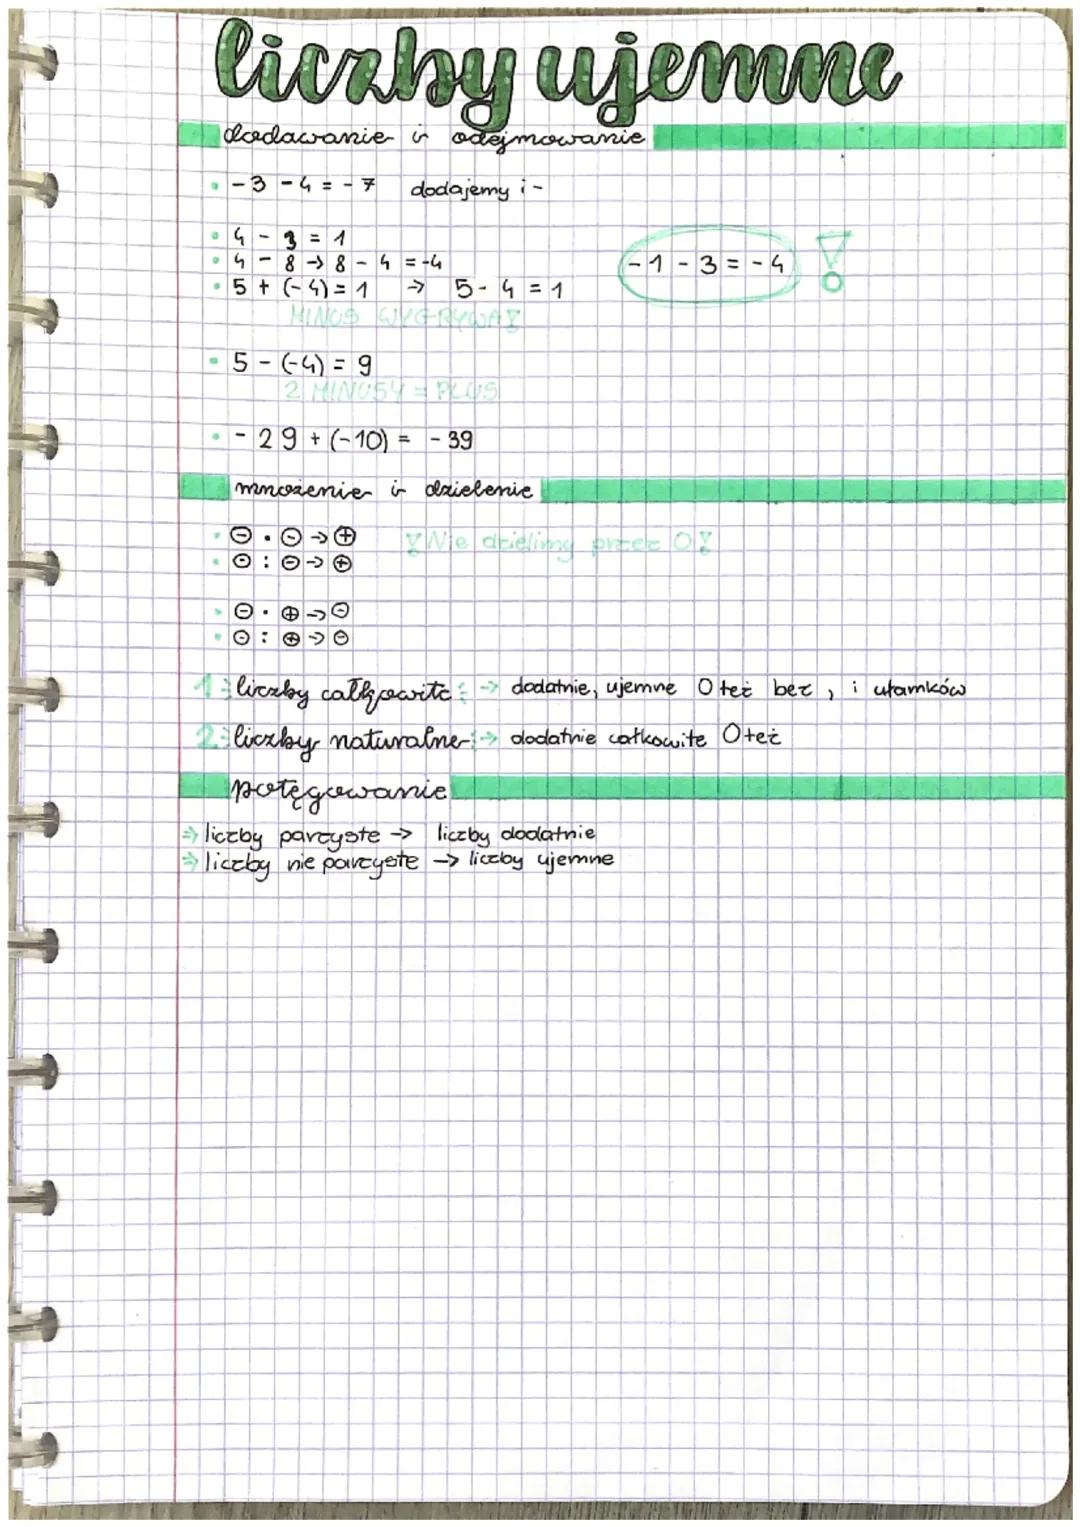 liczby ujemne
dodawanie i odejmowanie
• -3 -4 = -7 dodajemy i -
• 4 - 3 = 1
• 4 - 8 → 8 - 4 = -4
-1 - 3 = -4 !
• 5 + (-4) = 1 → 5 - 4 = 1
MINUS WYGRYWA!
• 5 - (-4) = 9
2 MINUSY = PLUS
• - 29 + (-10) = - 39
mnożenie i dzielenie
• ⊖ · ⊖ → ⊕ ! Nie dzielimy przez 0 !
• ⊖ : ⊖ → ⊕
• ⊖ · ⊕ → ⊖
• ⊖ : ⊕ → ⊖
1 liczby całkowite : → dodatnie, ujemne 0 też bez , i ułamków
2 liczby naturalne : → dodatnie całkowite 0 też
potęgowanie
⇒ liczby parzyste → liczby dodatnie
⇒ liczby nie parzyste → liczby ujemne